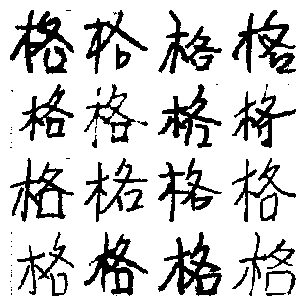 格格格格
格格格格
格格格格
格格格格